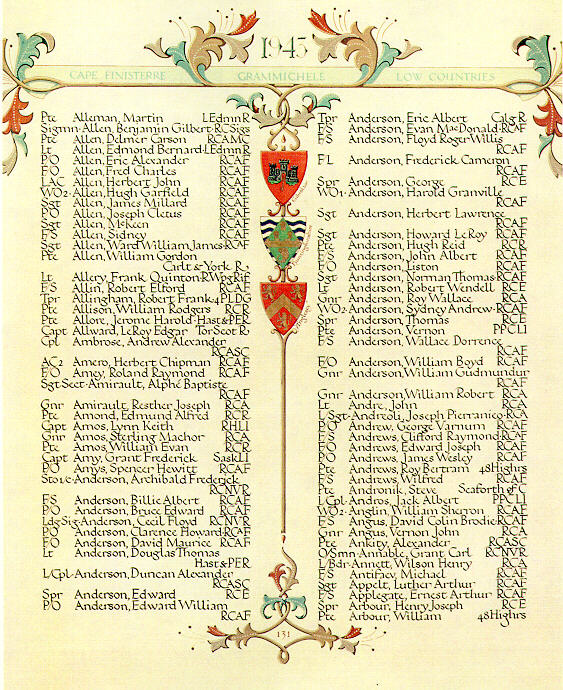 1943
CAPE FINISTERRE GRAMMICHELE LOW COUNTRIES
Pte Alleman, Martin LEdmnR
Sigmn Allen, Benjamin Gilbert RCSigs
Pte Allen, Delmer Carson RCAMC
Lt Allen, Edmond Bernard LEdmnR
P/O Allen, Eric Alexander RCAF
F/O Allen, Fred Charles RCAF
LAC Allen, Herbert John RCAF
WO2 Allen, Hugh Garfield RCAF
Sgt Allen, James Millard RCAF
P/O Allen, Joseph Cletus RCAF
Sgt Allen, McKeen RCAF
F/S Allen, Sidney RCAF
Sgt Allen, Ward William James RCAF
Pte Allen, William Gordon
Carlt & York R
Lt Allery, Frank Quinton RWpgRif
F/S Allin, Robert Elford RCAF
Tpr Allingham, Robert Frank 4PLDG
Pte Allison, William Rodgers RCR
Pte Allore, Jerome Harold Hast&PER
Capt Allward, LeRoy Edgar TorScot R
Cpl Ambrose, Andrew Alexander
RCASC
AC2 Amero, Herbert Chipman RCAF
F/O Amey, Roland Raymond RCAF
Sgt Sect Amirault, Alphé Baptiste
RCAF
Gnr Amirault, Resther Joseph RCA
Pte Amond, Edmund Alfred RCR
Capt Amos, Lynn Keith RHLI
Gnr Amos, Sterling Machor RCA
Pte Amos, William Evan RCR
Capt Amy, Grant Frederick SaskLI
P/O Amys, Spencer Hewitt RCAF
Sto1/c Anderson, Archibald Frederick
RCNVR
F/S Anderson, Billie Albert RCAF
P/O Anderson, Bruce Edward RCAF
LdgSig Anderson, Cecil Floyd RCNVR
P/O Anderson, Clarence Howard RCAF
F/O Anderson, David Maurice RCAF
Lt Anderson, Douglas Thomas
Hast&PER
L/Cpl Anderson, Duncan Alexander
RCASC
Spr Anderson, Edward RCE
P/O Anderson, Edward William
RCAF
Tpr Anderson, Eric Albert Calg R
F/S Anderson, Evan MacDonald RCAF
F/S Anderson, Floyd Roger Willis
RCAF
F/L Anderson, Frederick Cameron
RCAF
Spr Anderson, George RCE
WO1 Anderson, Harold Granville
RCAF
Sgt Anderson, Herbert Lawrence
RCAF
Sgt Anderson, Howard LeRoy RCAF
Pte Anderson, Hugh Reid RCR
F/S Anderson, John Albert RCAF
F/O Anderson, Liston RCAF
Sgt Anderson, Norman Thomas RCAF
Lt Anderson, Robert Wendell RCE
Gnr Anderson, Roy Wallace RCA
WO2 Anderson, Sydney Andrew RCAF
Spr Anderson, Thomas RCE
Pte Anderson, Vernon PPCLI
F/S Anderson, Wallace Dorrence
RCAF
F/O Anderson, William Boyd RCAF
Gnr Anderson, William Gudmundur
RCAF
Gnr Anderson, William Robert RCA
Lt Andre, John RCA
L/Sgt Andreoli, Joseph Pierranico RCA
P/O Andrew, George Varnum RCAF
F/S Andrews, Clifford Raymond RCAF
F/O Andrews, Edward Joseph RCAF
P/O Andrews, James Wesley RCAF
Pte Andrews, Roy Bertram 48Highrs
F/S Andrews, Wilfred RCAF
Pte Andronik, Steve Seaforth of C
L/Cpl Andros, Jack Albert PPCLI
WO2 Anglin, William Sherron RCAF
F/S Angus, David Colin Brodie RCAF
Gnr Angus, Vernon John RCA
Pte Ankity, Alexander RCASC
O/Smn Annable, Grant Carl RCNVR
L/Bdr Annett, Wilson Henry RCA
F/S Antifaev, Michael RCAF
Sgt Appelt, Luther Arthur RCAF
F/S Applegate, Ernest Arthur RCAF
Spr Arbour, Henry Joseph RCE
Pte Arbour, William 48Highrs
131